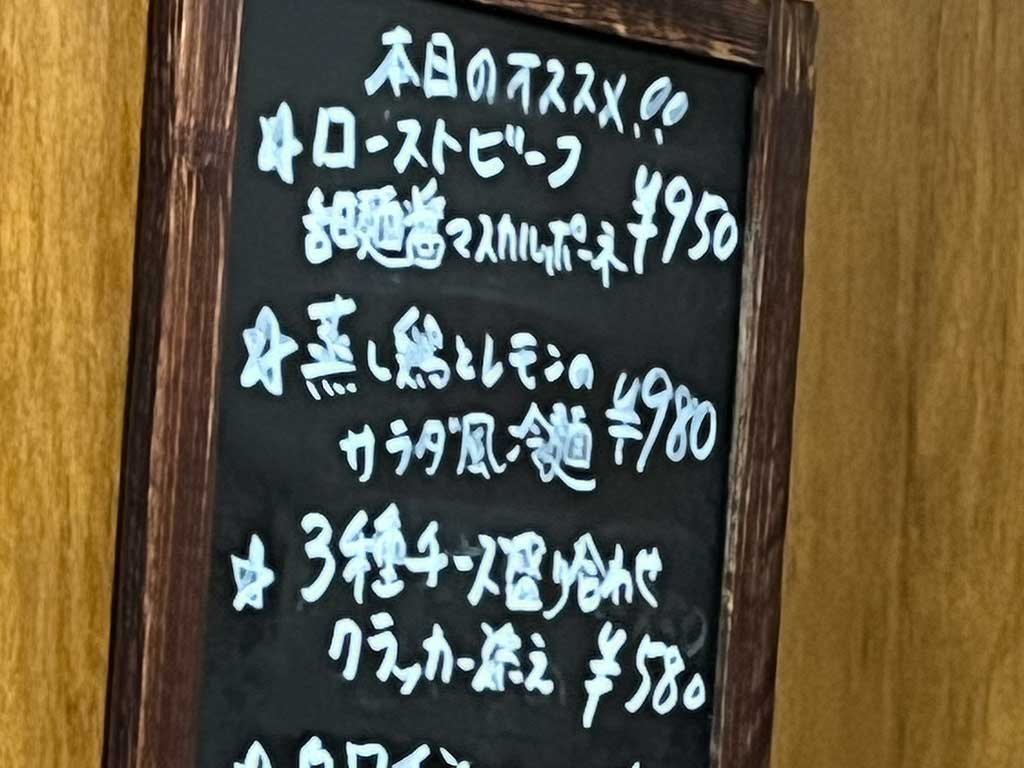 本日のオススメ!!
☆ローストビーフ
甜麺醤マスカルポーネ ¥950
☆蒸し鶏とレモンの
サラダ風冷麺 ¥980
☆3種チーズ盛り合わせ
クラッカー添え ¥580
☆白ワイン